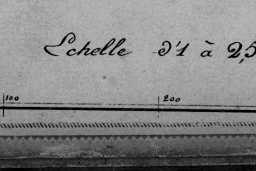 Echelle d'1 à 2,5
100 200